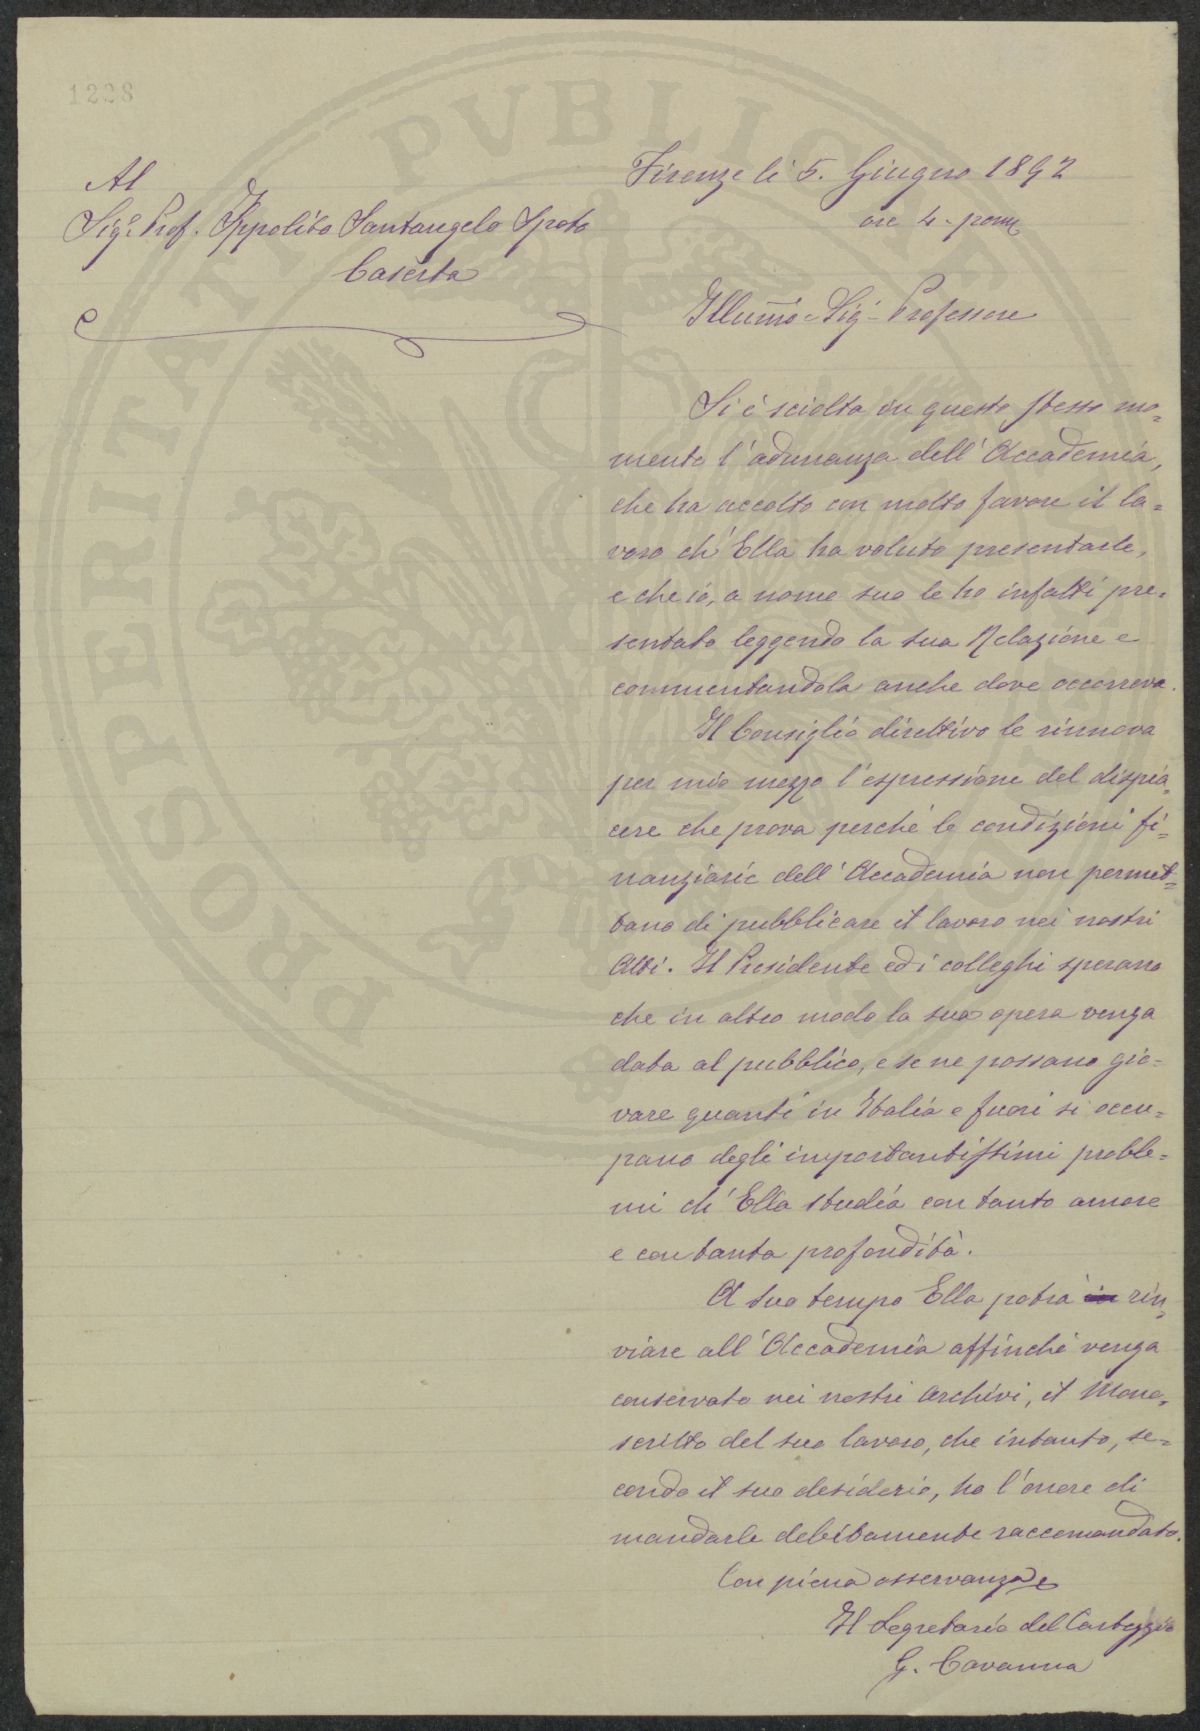 1228
Al
Sigr. Prof. Ippolito Santangelo Spoto
Caserta
Firenze li 5. Giugno 1892
ore 4 - pom
Illummo. Sig. Professore
Si è sciolta in questo stesso mo=
mento l'adunanza dell'Accademia,
che ha accolto con molto favore il la=
voro ch'Ella ha voluto presentarle,
e che io, a nome suo le ho infatti pre=
sentato leggendo la sua Relazione e
commentandola anche dove occorreva.
Il Consiglio direttivo le rinnova
per mio mezzo l'espressione del dispia=
cere che prova perché le condizioni fi=
nanziarie dell'Accademia non permet=
tano di pubblicare il lavoro nei nostri
Atti. Il Presidente ed i colleghi sperano
che in altro modo la sua opera venga
data al pubblico, e se ne possano gio=
vare quanti in Italia e fuori si occu=
pano degli importantissimi proble=
mi ch'Ella studia con tanto amore
e con tanta profondità.
A suo tempo Ella potrà rin=
viare all'Accademia affinché venga
conservato nei nostri Archivi, il Mano=
scritto del suo lavoro, che intanto, se=
condo il suo desiderio, ho l'onore di
mandarle debitamente raccomandato.
Con piena osservanza
Il Segretario del Carteggio
G. Cavanna
PROSPERITATI PVBLICAE